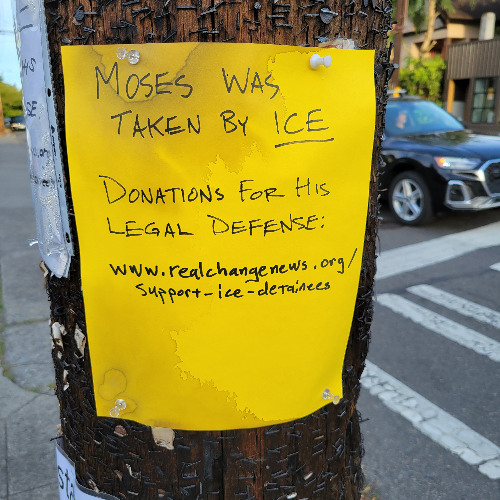 MOSES WAS
TAKEN BY ICE
DONATIONS FOR HIS
LEGAL DEFENSE:
www.realchangenews.org/
support-ice-detainees